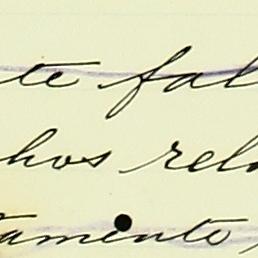 te fal
hos rela
tamento